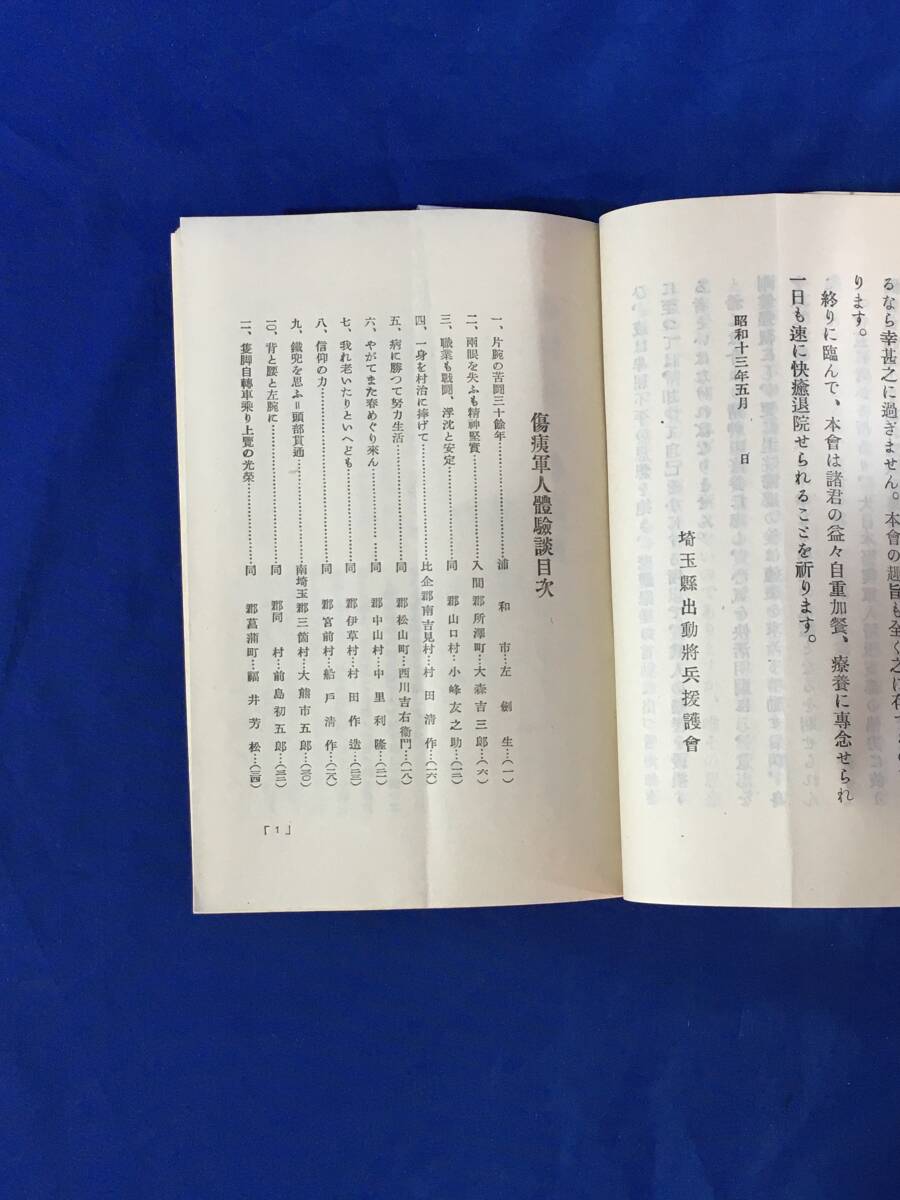 るなら幸甚之に過ぎません。本會の趣旨も全く之に存
ります。
終りに臨んで、本會は諸君の益々自重加餐、療養に專念せられ
一日も速に快癒退院せられることを祈ります。
昭和十三年五月　日
埼玉縣出動將兵援護會
傷痍軍人體驗談目次
一、片腕の苦鬪三十餘年…………浦和市…左劍生…(一)
二、兩眼を失ふも精神堅實…………入間郡所澤町…大森吉三郎…(六)
三、職業も戰鬪、浮沈と安定…………同郡山口村…小峰友之助…(一三)
四、一身を村治に捧げて…………比企郡南吉見村…村田清作…(一六)
五、病に勝つて努力生活…………同郡松山町…西川吉右衞門…(一八)
六、やがてまた春めぐり來ん…………同郡中山村…中里利隆…(二一)
七、我れ老いたりといへども…………同郡伊草村…村田作造…(二三)
八、信仰の力…………同郡宮前村…船戸清作…(二八)
九、鐵兜を思ふ＝頭部貫通…………南埼玉郡三箇村…大熊市五郎…(三〇)
一〇、背と腰と左腕に…………同郡同村…前島初五郎…(三二)
一一、隻脚自轉車乘り上覽の光榮…………同郡菖蒲町…福井芳松…(三四)
「1」